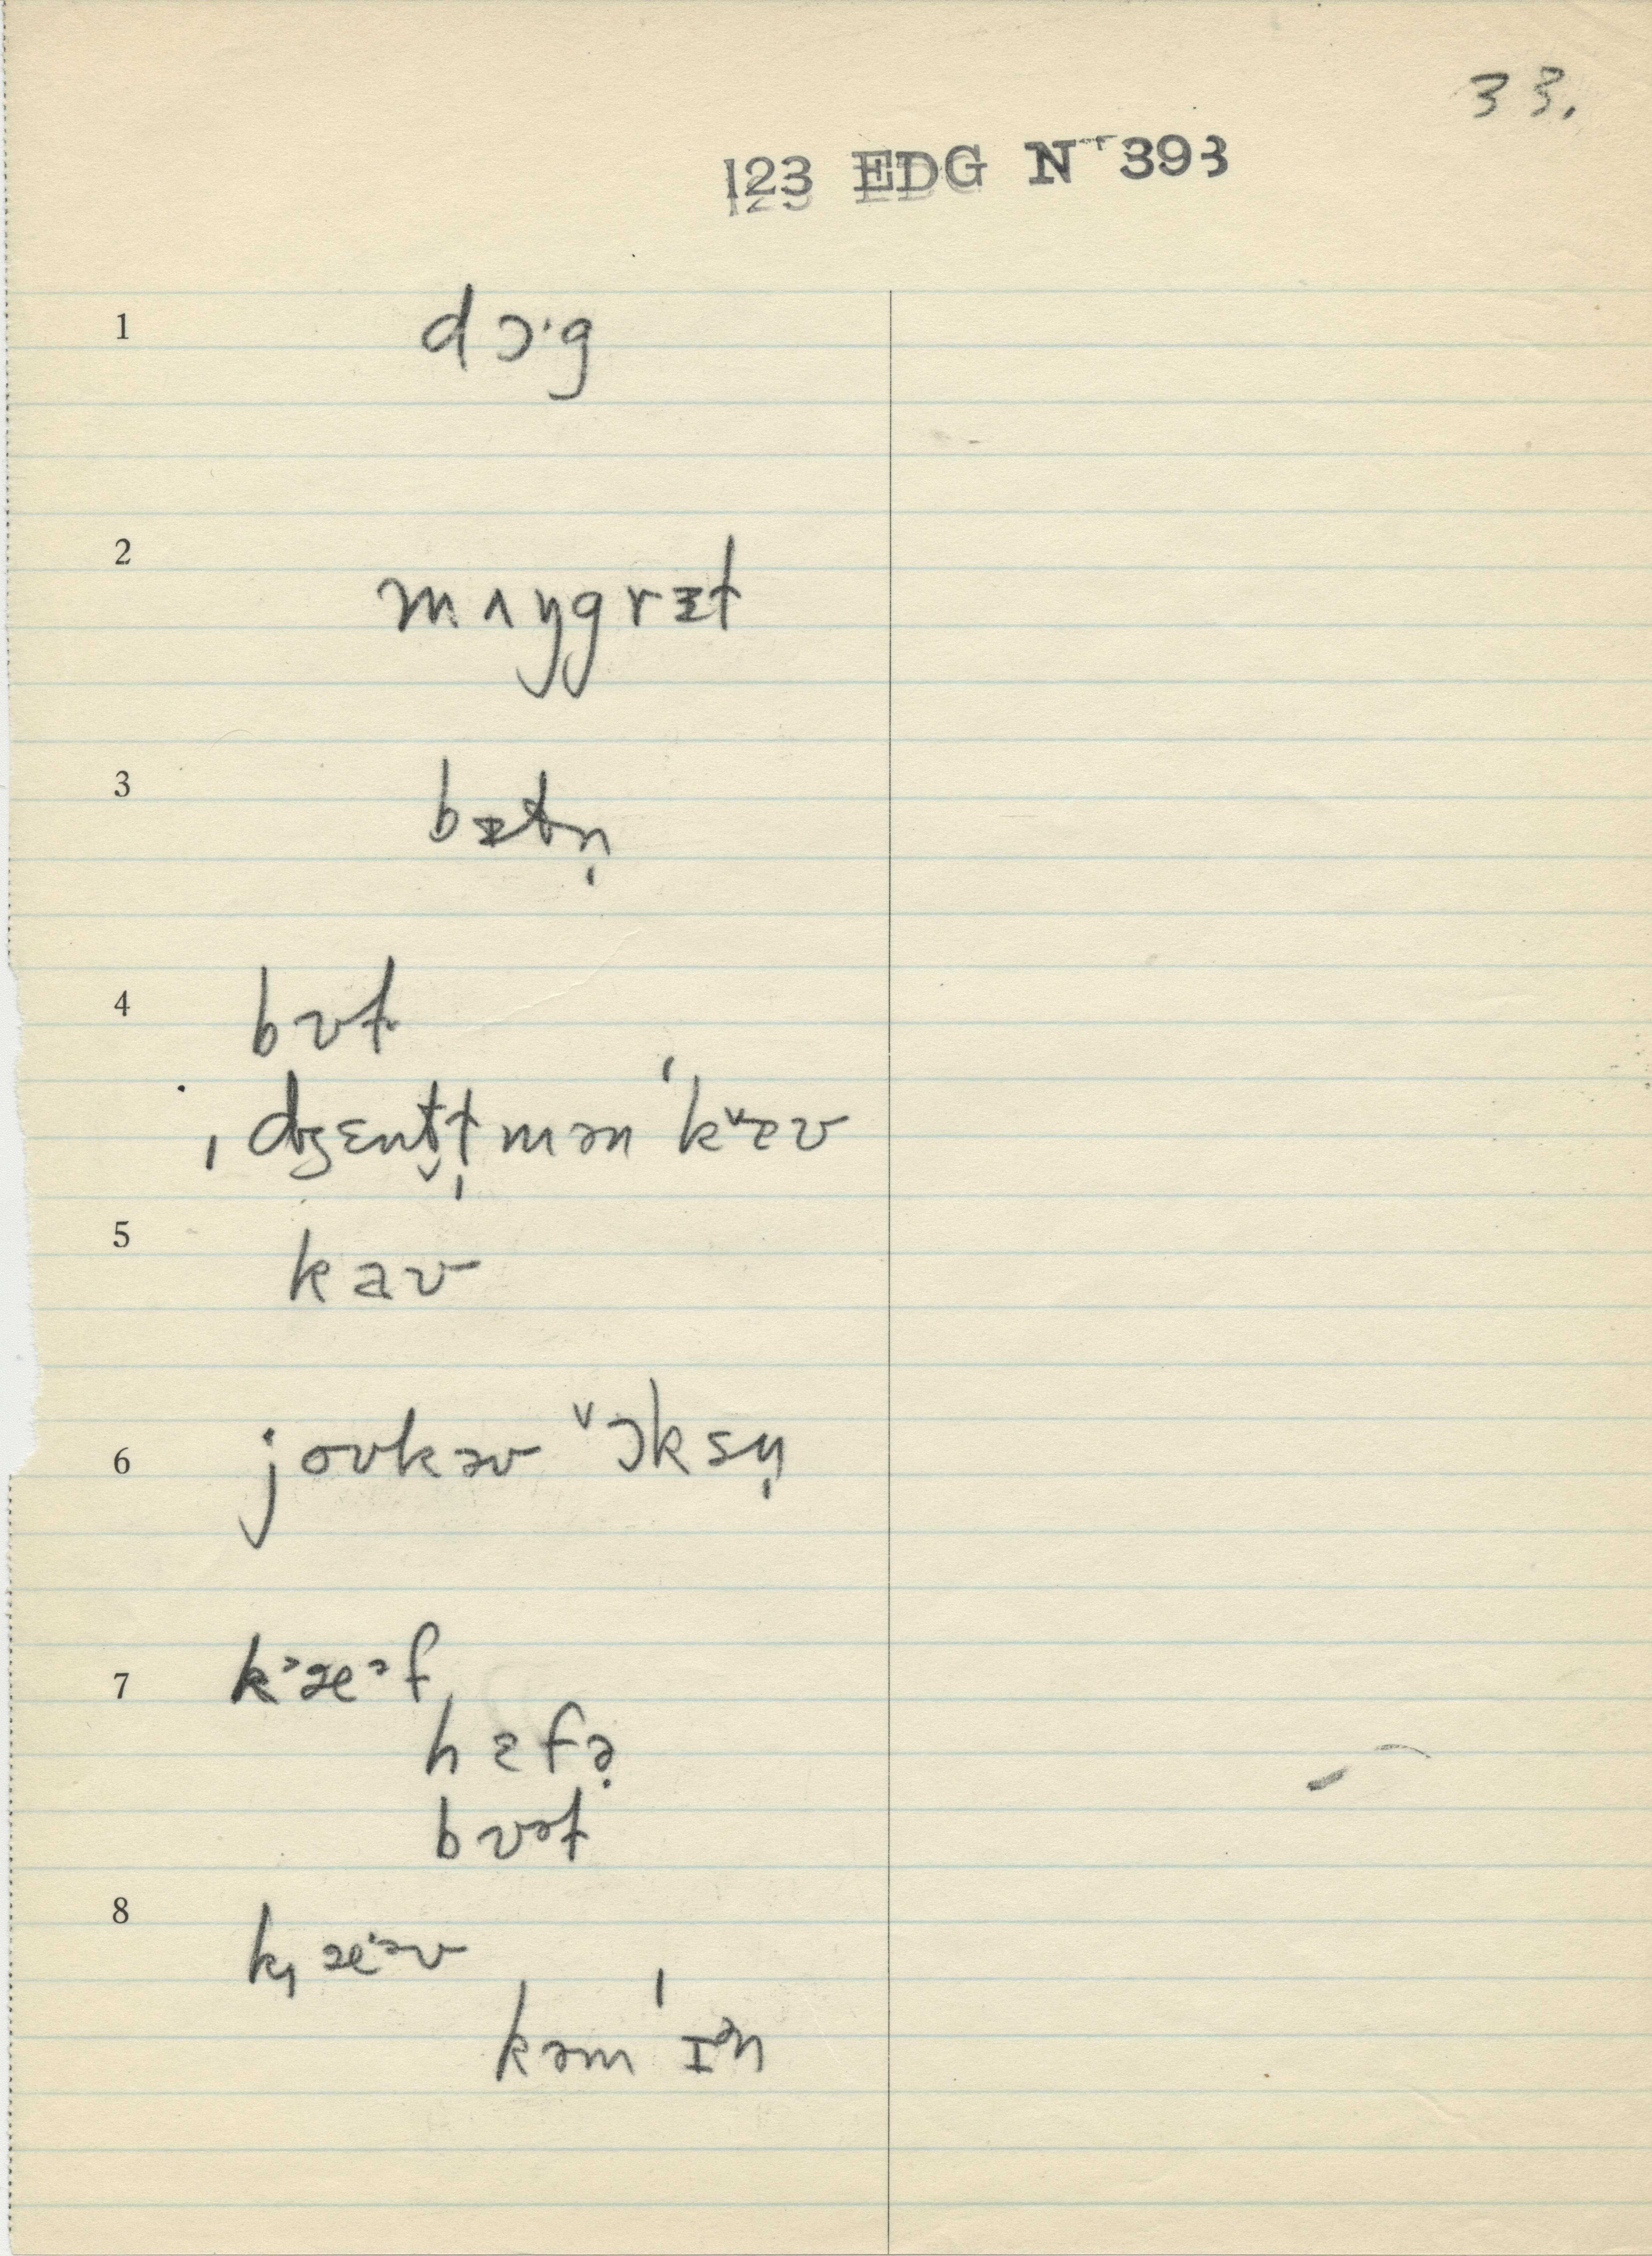 33.
123 EDG N 393
1 dɔˑg
2 mʌŋgrɪt
3
4 bʊt
ˌdʒɛntl̩mən ˈkᵛæʊ
5 kaʊ
6 joʊkəʊ ᵛɔksn̩
7 kᵊæᵊf
hɛfə̣
bʊət
8 k˒æˑəʊ
kəmˈɪᵊn